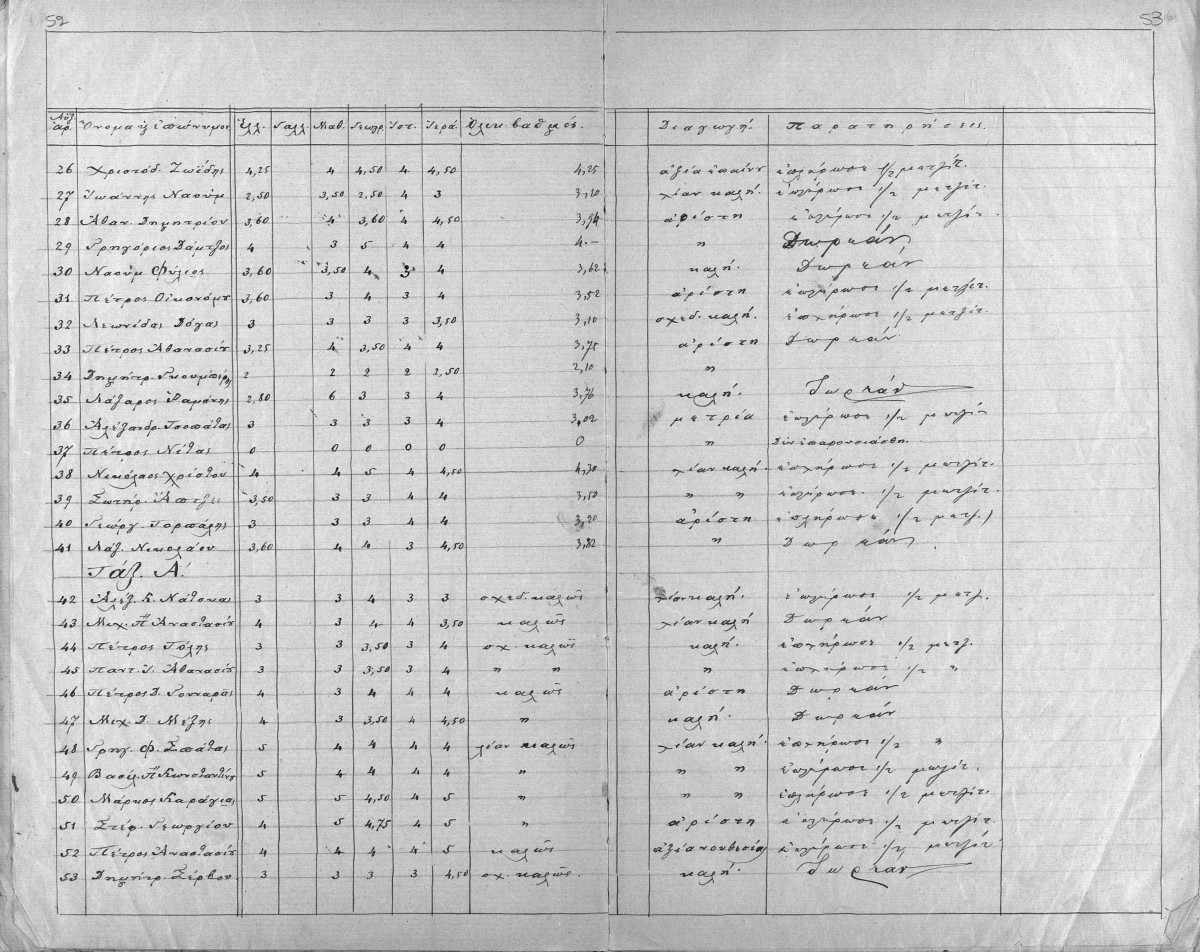 52 53
Αὔξ. ἀρ. Ὄνομα ἐπώνυμον Ἑλλ. Γαλλ. Μαθ. Γεωγρ. Ἱστ. Ἱερά. Ὁλικ βαθμός. Διαγωγή. Παρατηρήσεις.
26 Χριστόδ. Ζωΐδης 4,25 4 4,50 4 4,50 4,25 ἀξία ἐπαίνου ἐπλήρωσε 1/2 μετζίτ.
27 Ἰωάννης Ναούμ 2,50 3,50 2,50 4 3 3,10 λίαν καλή. ἐπλήρωσε 1/2 μετζίτ.
28 Ἀθαν. Δημητρίου 3,60 4 3,60 4 4,50 3,94 ἀρίστη ἐπλήρωσε 1/2 μετζίτ.
29 Γρηγόριος 4 3 5 4 4 4.— " Δωρεάν
30 Ναούμ Φίλιος 3,60 3,50 4 3 4 3,62 καλή. Δωρεάν
31 Πέτρος Οἰκονόμου 3,60 3 4 3 4 3,52 ἀρίστη ἐπλήρωσε 1/2 μετζίτ.
32 Λεωνίδας 3 3 3 3 3,50 3,10 σχεδ. καλή. ἐπλήρωσε 1/2 μετζίτ.
33 Πέτρος Ἀθανασίου 3,25 4 3,50 4 4 3,75 ἀρίστη Δωρεάν
34 Δημήτρ. 2 2 2 2 2,50 2,10 "
35 Λάζαρος 2,80 6 3 3 4 3,76 καλή. Δωρεάν
36 Ἀλέξανδρ. 3 3 3 3 4 3,02 μετρία ἐπλήρωσε 1/2 μετζίτ
37 Πέτρος Νέτας 0 0 0 0 0 0 " Δὲν ἐπαρουσιάσθη.
38 Νικόλαος Χρίστου 4 4 5 4 4,50 4,30 λίαν καλή. ἐπλήρωσε 1/2 μετζίτ.
39 Σωτήρ. 3,50 3 3 4 4 3,50 " " ἐπλήρωσε. 1/2 μετζίτ.
40 Γεώργ. 3 3 3 4 4 3,20 ἀρίστη ἐπλήρωσε 1/2 μετζ.)
41 Λάζ. Νικολάου 3,60 4 4 3 4,50 3,82 " Δωρεάν.
Τάξ. Α΄.
42 Ἀλέξ. Κ. Νάτσκας 3 3 4 3 3 σχεδ. καλῶς λίαν καλή. ἐπλήρωσε 1/2 μετζ.
43 Μιχ. Π. Ἀναστασίου 4 3 4 4 3,50 καλῶς λίαν καλή Δωρεάν
44 Πέτρος 3 3 3,50 3 4 σχ. καλῶς καλή. ἐπλήρωσε 1/2 μετζ.
45 Παντ. Ἀθανασίου 3 3 3,50 3 4 " " " ἐπλήρωσε 1/2 "
46 Πέτρος Δ. Γουναρᾶς 4 3 4 4 4 καλῶς ἀρίστη Δωρεάν
47 Μιχ. Δ. Μέξης 4 3 3,50 4 4,50 " καλή. Δωρεάν
48 Γρηγ. Φ. Σπάθας 5 4 4 4 4 λίαν καλῶς λίαν καλή. ἐπλήρωσε 1/2 "
49 Βασίλ. Π. Κωνσταντίνου 5 4 4 4 4 " " " ἐπλήρωσε 1/2 μετζίτ.
50 Μάρκος Καράγιας 5 5 4,50 4 5 " " " ἐπλήρωσε 1/2 μετζίτ.
51 Στέφ. Γεωργίου 4 5 4,75 4 5 " ἀρίστη ἐπλήρωσε 1/2 μετζίτ.
52 Πέτρος Ἀναστασίου 4 4 4 4 5 καλῶς ἀξία νουθεσίας ἐπλήρωσε 1/2 μετζίτ
53 Δημήτρ. Σέρβου 3 3 3 3 4,50 σχ. καλῶς. καλή. Δωρεάν